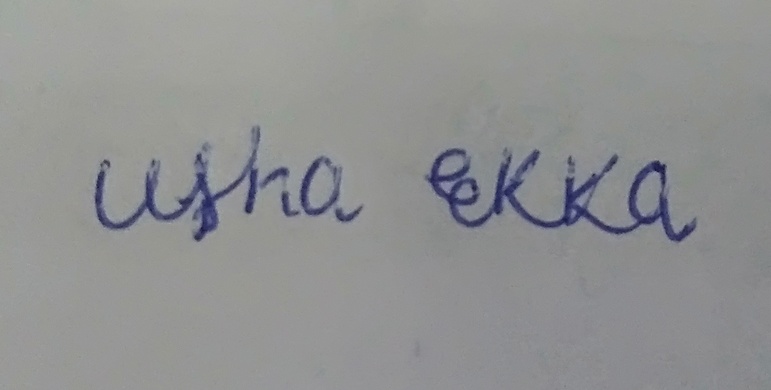 Usha ekka